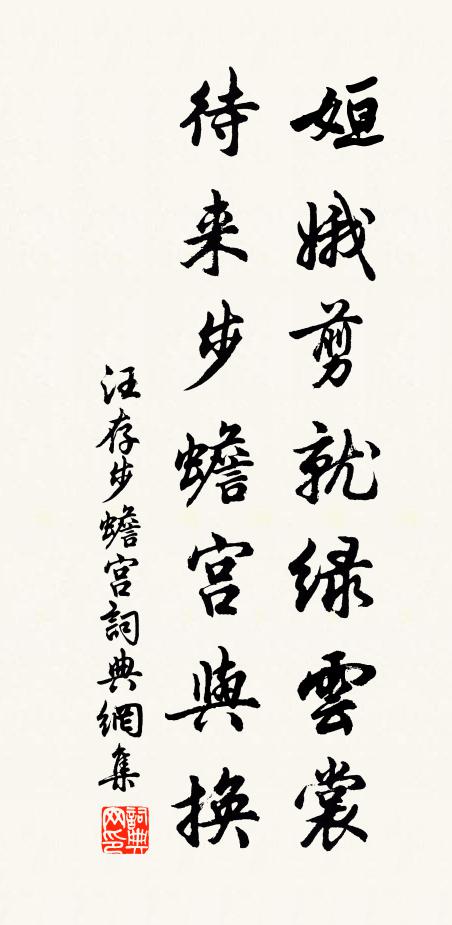 姮娥剪就绿雲裳
待来步蟾宫與換
汪存步蟾宫詞典網集
詞典网印